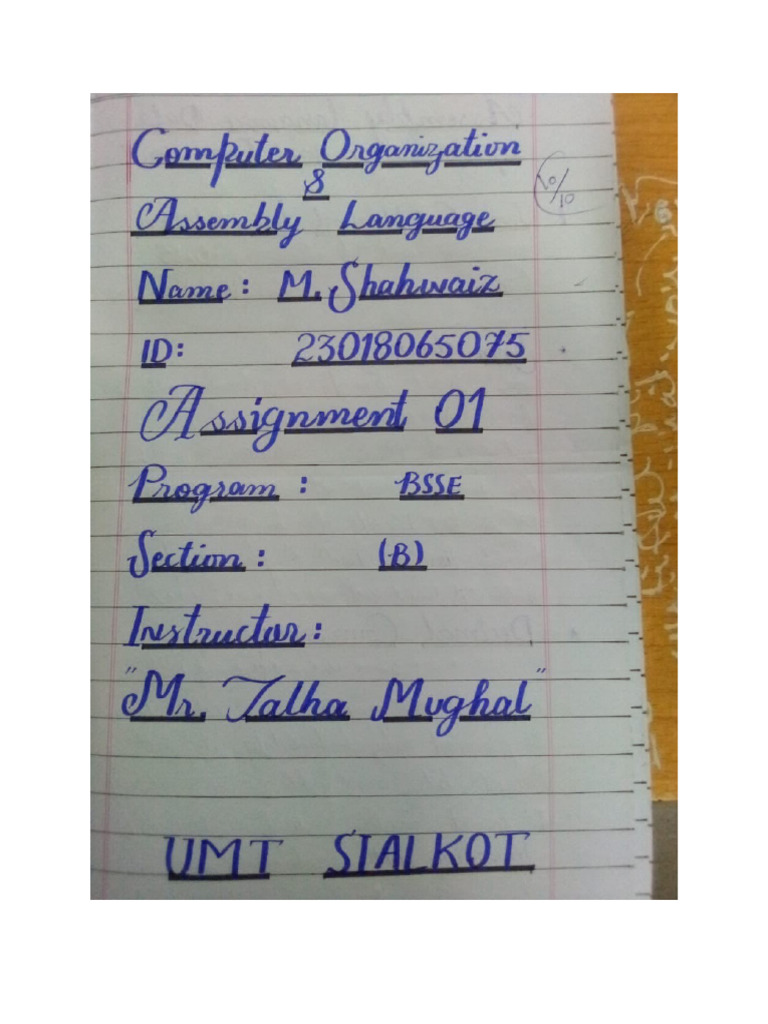 Computer Organization
&
Assembly Language
10/10
Name: M. Shahwaiz
ID: 23018065075
Assignment 01
Program: BSSE
Section: (B)
Instructor:
"Mr. Talha Mughal"
UMT SIALKOT